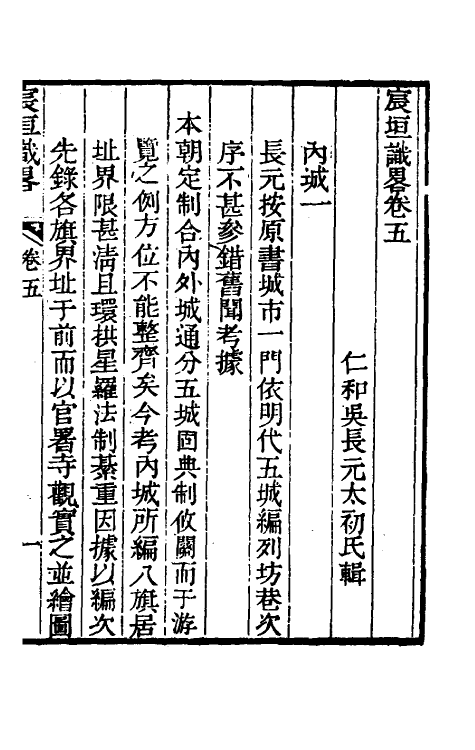 宸垣識畧卷五
仁和吳長元太初氏輯
內城一
長元按原書城市一門依明代五城編列坊巷次
序不甚參錯舊聞考據
本朝定制合內外城通分五城固典制攸關而于游
覽之例方位不能整齊矣今考內城所編八旗居
址界限甚淸且環拱星羅法制綦重因據以編次
先錄各旗界址于前而以官署寺觀實之並繪圖
宸垣識畧
卷五
一